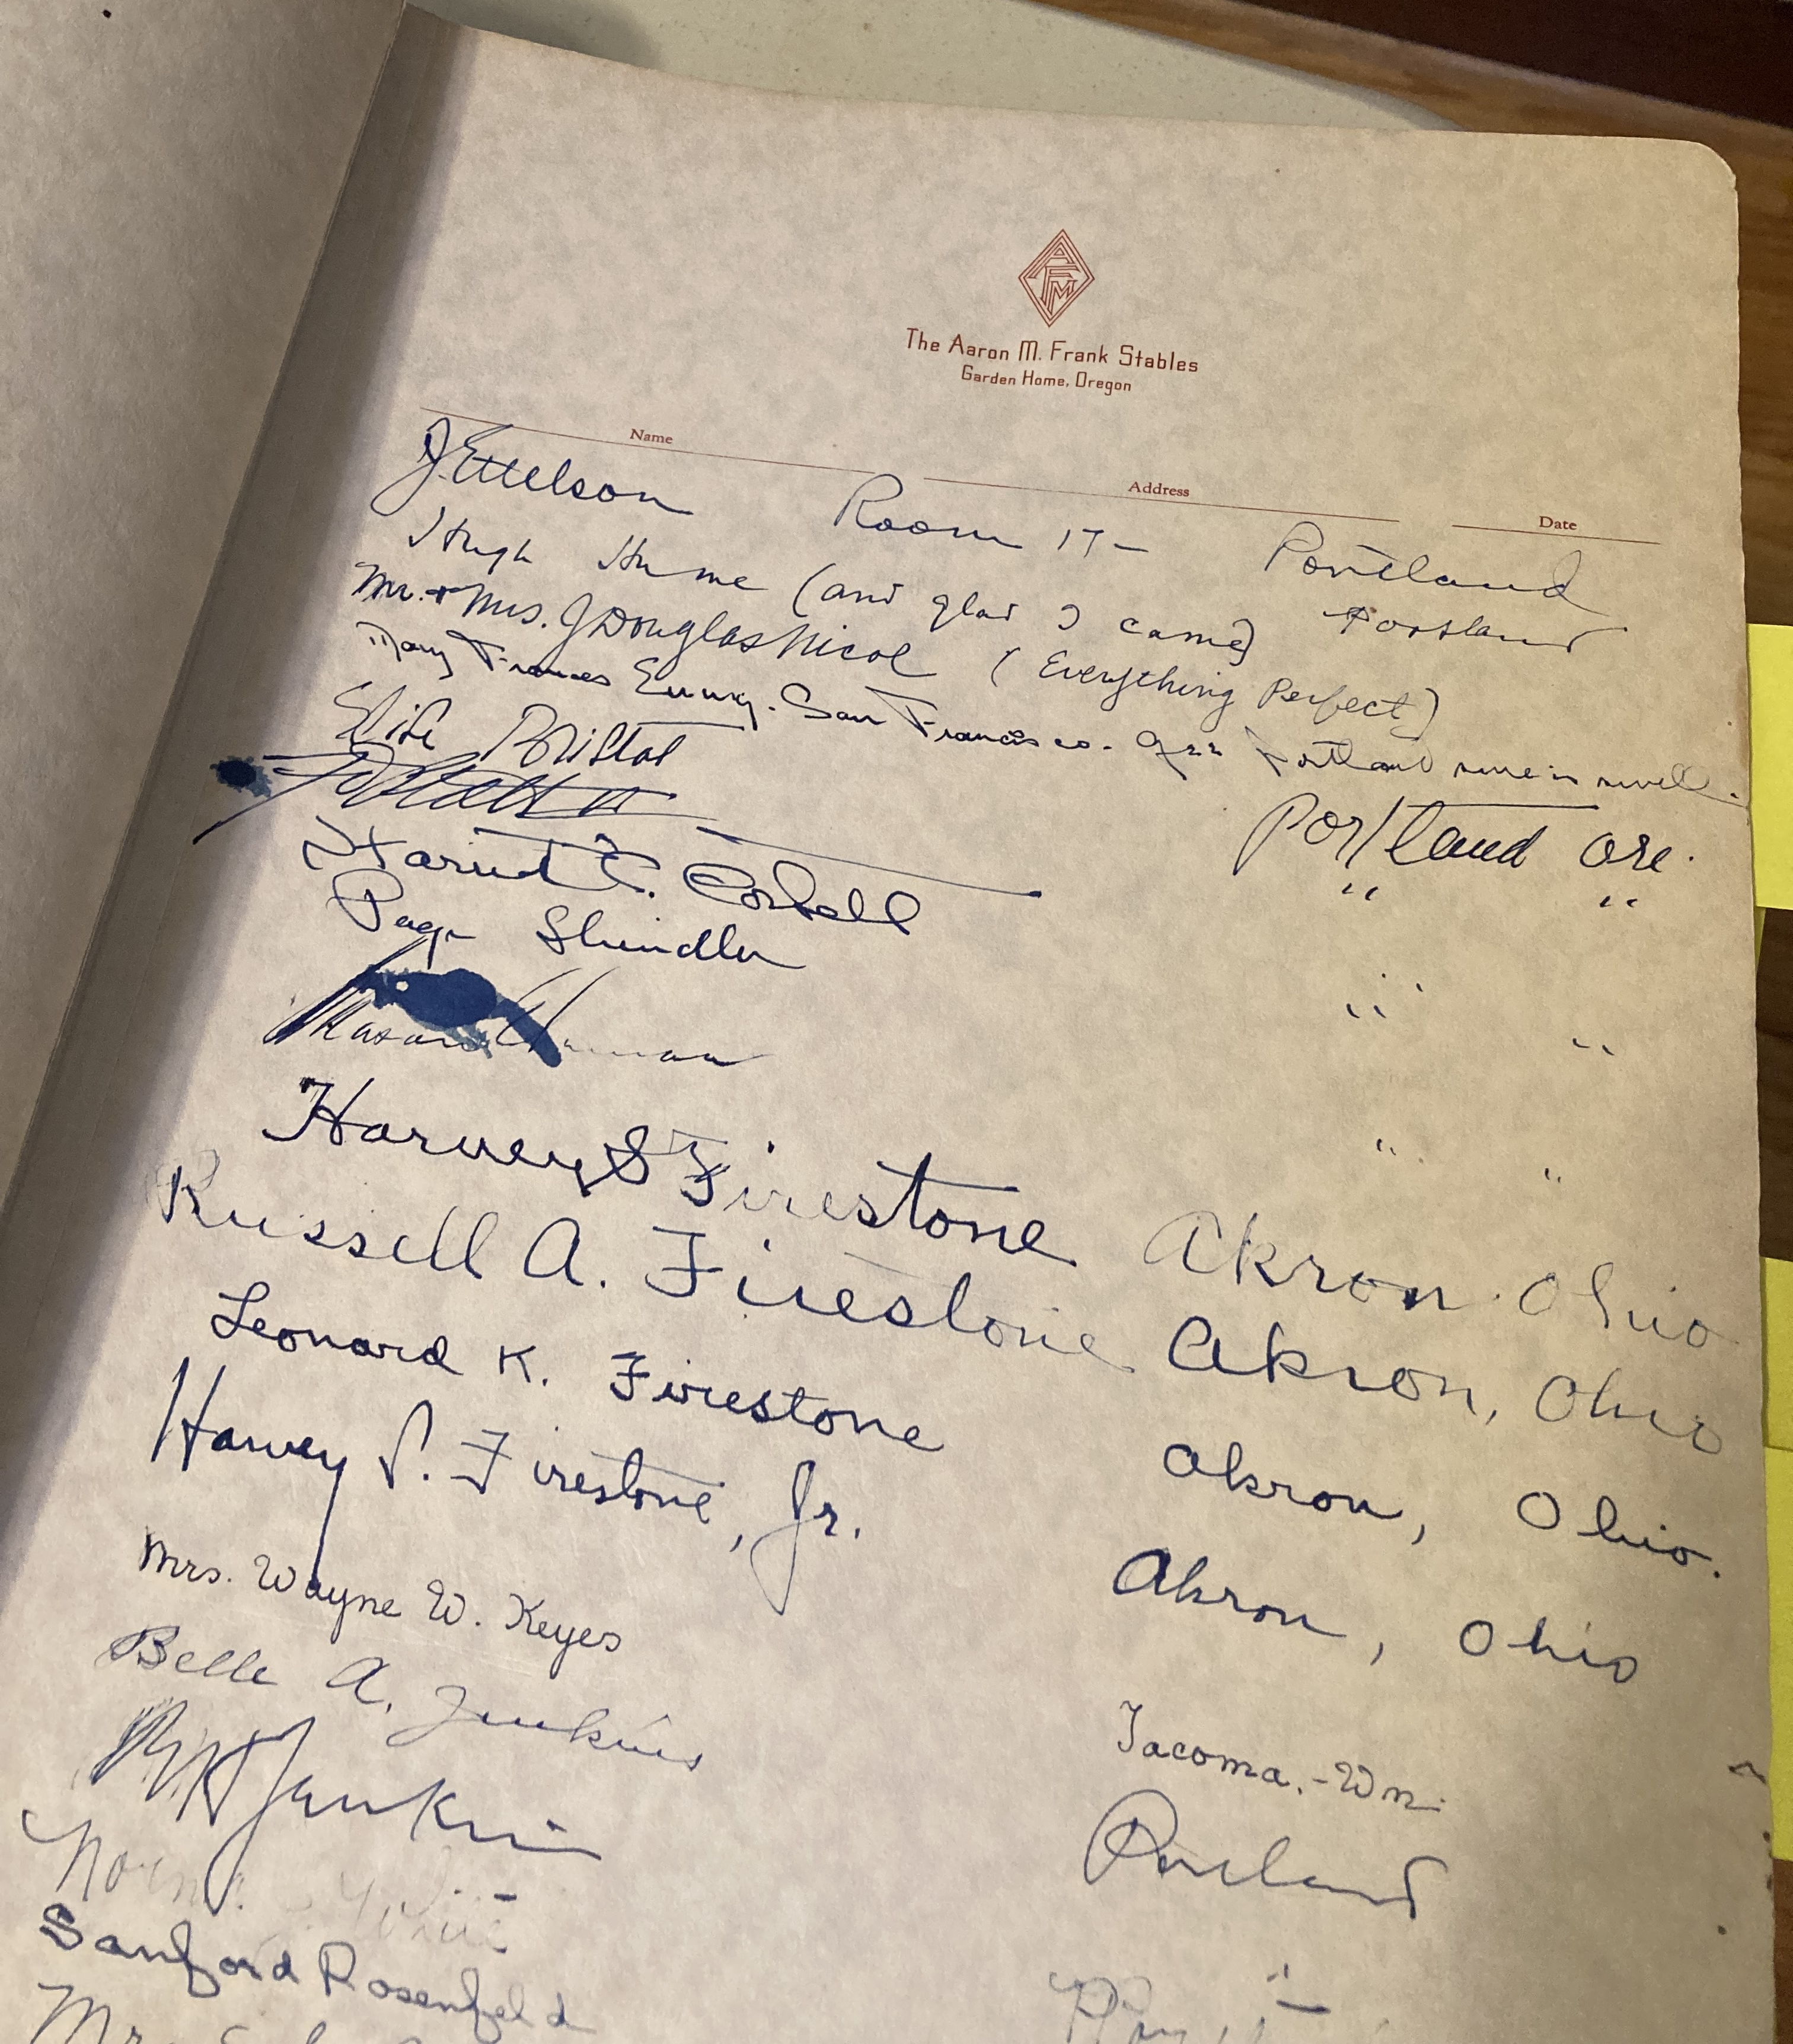 AFM
The Aaron M. Frank Stables
Garden Home, Oregon
Name Address Date
J. Ettelson Room 17 - Portland
Hugh Hume (and glad I came) Portland
Mr. + Mrs. J Douglas Nicol (Everything Perfect)
Mary Frances - San Francisco - Portland
Bristol
Portland Ore.
Harriet Corbell " "
Page Shindler " "
" "
Harvey S Firestone Akron Ohio
Russell A. Firestone Akron, Ohio
Leonard K. Firestone Akron, Ohio.
Harvey S. Firestone, Jr. Akron, Ohio
Mrs. Wayne W. Keyes Tacoma. - Wn.
Belle A. Jenkins Portland
Jenkins
Sanford Rosenfeld